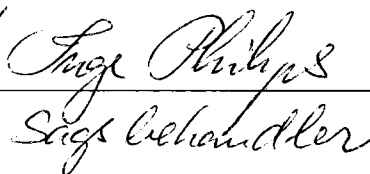 Inge Philips
Sagsbehandler